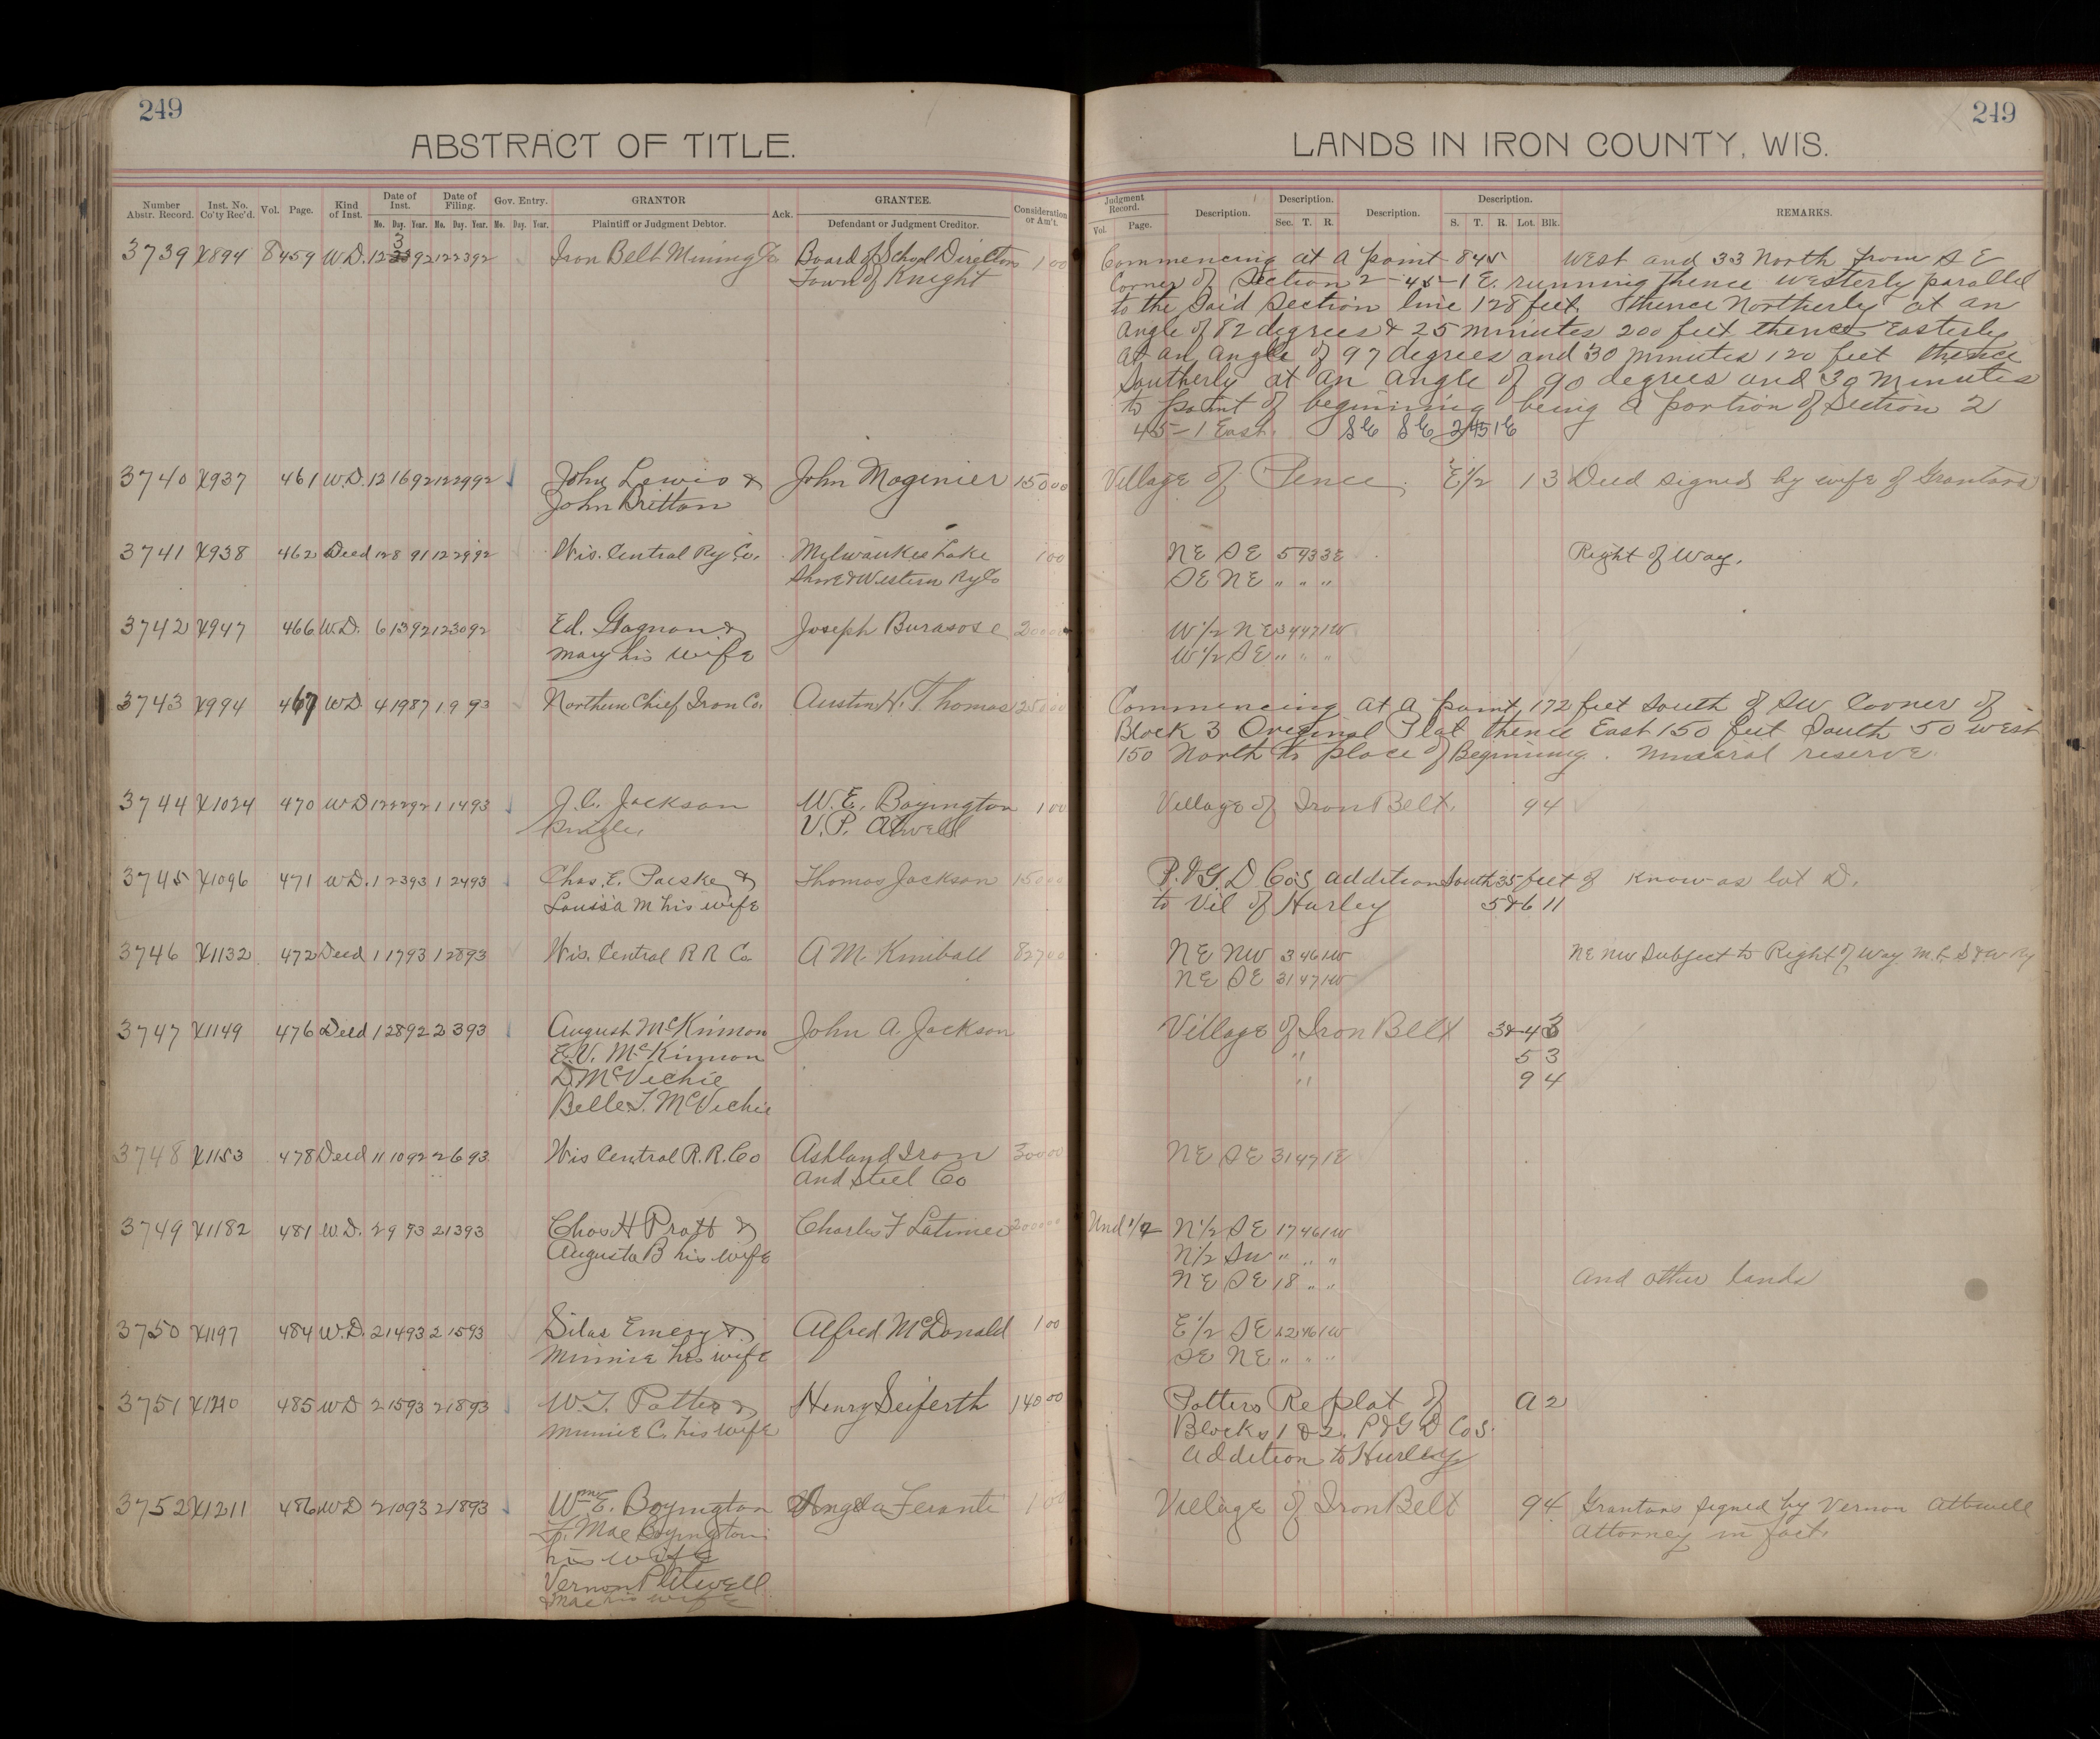 249
ABSTRACT OF TITLE.
Number Abstr. Record. Inst. No. Co'ty Rec'd. Vol. Page. Kind of Inst. Date of Inst. Date of Filing. Gov. Entry. GRANTOR Ack. GRANTEE. Consideration or Am't.
Mo. Day. Year. Mo. Day. Year. Mo. Day. Year. Plaintiff or Judgment Debtor. Defendant or Judgment Creditor.
3739 X894 8 459 W.D. 12 3 92 12 23 92 Iron Belt Mining Co Board of School Directors 1 00
Town of Knight
3740 X937 461 W.D. 12 16 92 12 29 92 John Lewis & John Mogenier 150 00
John Britton
3741 X938 462 Deed 12 8 91 12 29 92 Wis. Central Ry Co. Milwaukee Lake 1 00
Shore & Western Ry Co
3742 X947 466 W.D. 6 13 92 12 30 92 Ed. Gagnon & Joseph Burasose 200 00
Mary his wife
3743 X994 467 WD 4 19 87 1 9 93 Northern Chief Iron Co. Austin H. Thomas 125 00
3744 X1024 470 WD 12 22 92 1 14 93 J.C. Jackson W.E. Boyington 1 00
Single. V.P. Atwell
3745 X1096 471 W.D. 1 23 93 1 24 93 Chas. E. Paeske & Thomas Jackson 150 00
Louisa M his wife
3746 X1132 472 Deed 1 17 93 1 28 93 Wis. Central R R Co A M. Kimball 827 00
3747 X1149 476 Deed 1 28 92 2 3 93 August McKinnon John A. Jackson
E.V. McKinnon
D. McVichie
Belle T. McVichie
3748 X1153 478 Deed 11 10 92 2 6 93 Wis Central R.R. Co Ashland Iron 300 00
and Steel Co
3749 X1182 481 W.D. 2 9 93 2 13 93 Chas H Pratt & Charles F Latimer 2000 00
Augusta B his wife
3750 X1197 484 W.D. 2 14 93 2 15 93 Silas Emery & Alfred McDonald 1 00
Minnie his wife
3751 X1210 485 WD 2 15 93 2 18 93 W.T. Potter & Henry Seiferth 140 00
Minnie C. his wife
3752 X1211 486 WD 2 10 93 2 18 93 Wm E. Boyington Angela Feranti 1 00
F. Mae Boyington
his wife
Vernon P Atwell
& Mae his wife
249
LANDS IN IRON COUNTY, WIS.
Judgment Record. Description. Description. Description. Description. REMARKS.
Vol. Page. Sec. T. R. S. T. R. Lot. Blk.
Commencing at a point 845 West and 33 North from S E
Corner of Section 2-45-1 E. running thence westerly parallel
to the said Section line 128 feet, thence Northerly at an
angle of 82 degrees & 25 minutes 200 feet thence Easterly
at an angle of 97 degrees and 30 minutes 120 feet thence
Southerly at an angle of 90 degrees and 30 minutes
to point of beginning being a portion of Section 2
45-1 East. SE SE 2 45 1E
Village of Pence. E1/2 1 3 Deed signed by wife of Grantors
NE SE 5 43 3E Right of Way.
SE NE " " "
W 1/2 NE 34 47 1W
W 1/2 SE " " "
Commencing at a point 172 feet South of SW Corner of
Block 3 Original Plat thence East 150 feet South 50 West
150 North to place of Beginning. Mineral reserve
Village of Iron Belt. 9 4
P. & G. D Co's addition South 35 feet of know as lot D.
to Vil of Hurley 5&6 11
NE NW 3 46 1W NE NW Subject to Right of Way M.L. S & W Ry
NE SE 31 47 1W
Village of Iron Belt 3&4 3
" 5 3
" 9 4
NE SE 31 47 1E
Und 1/2 N1/2 SE 17 46 1W
N1/2 SW " " "
NE SE 18 " " And other lands
E1/2 SE 12 46 1W
SE NE " " "
Potters Replat of A 2
Blocks 1 & 2, P & G D Co's.
Addition to Hurley
Village of Iron Belt 9 4 Grantors signed by Vernon Attwell
Attorney in fact.